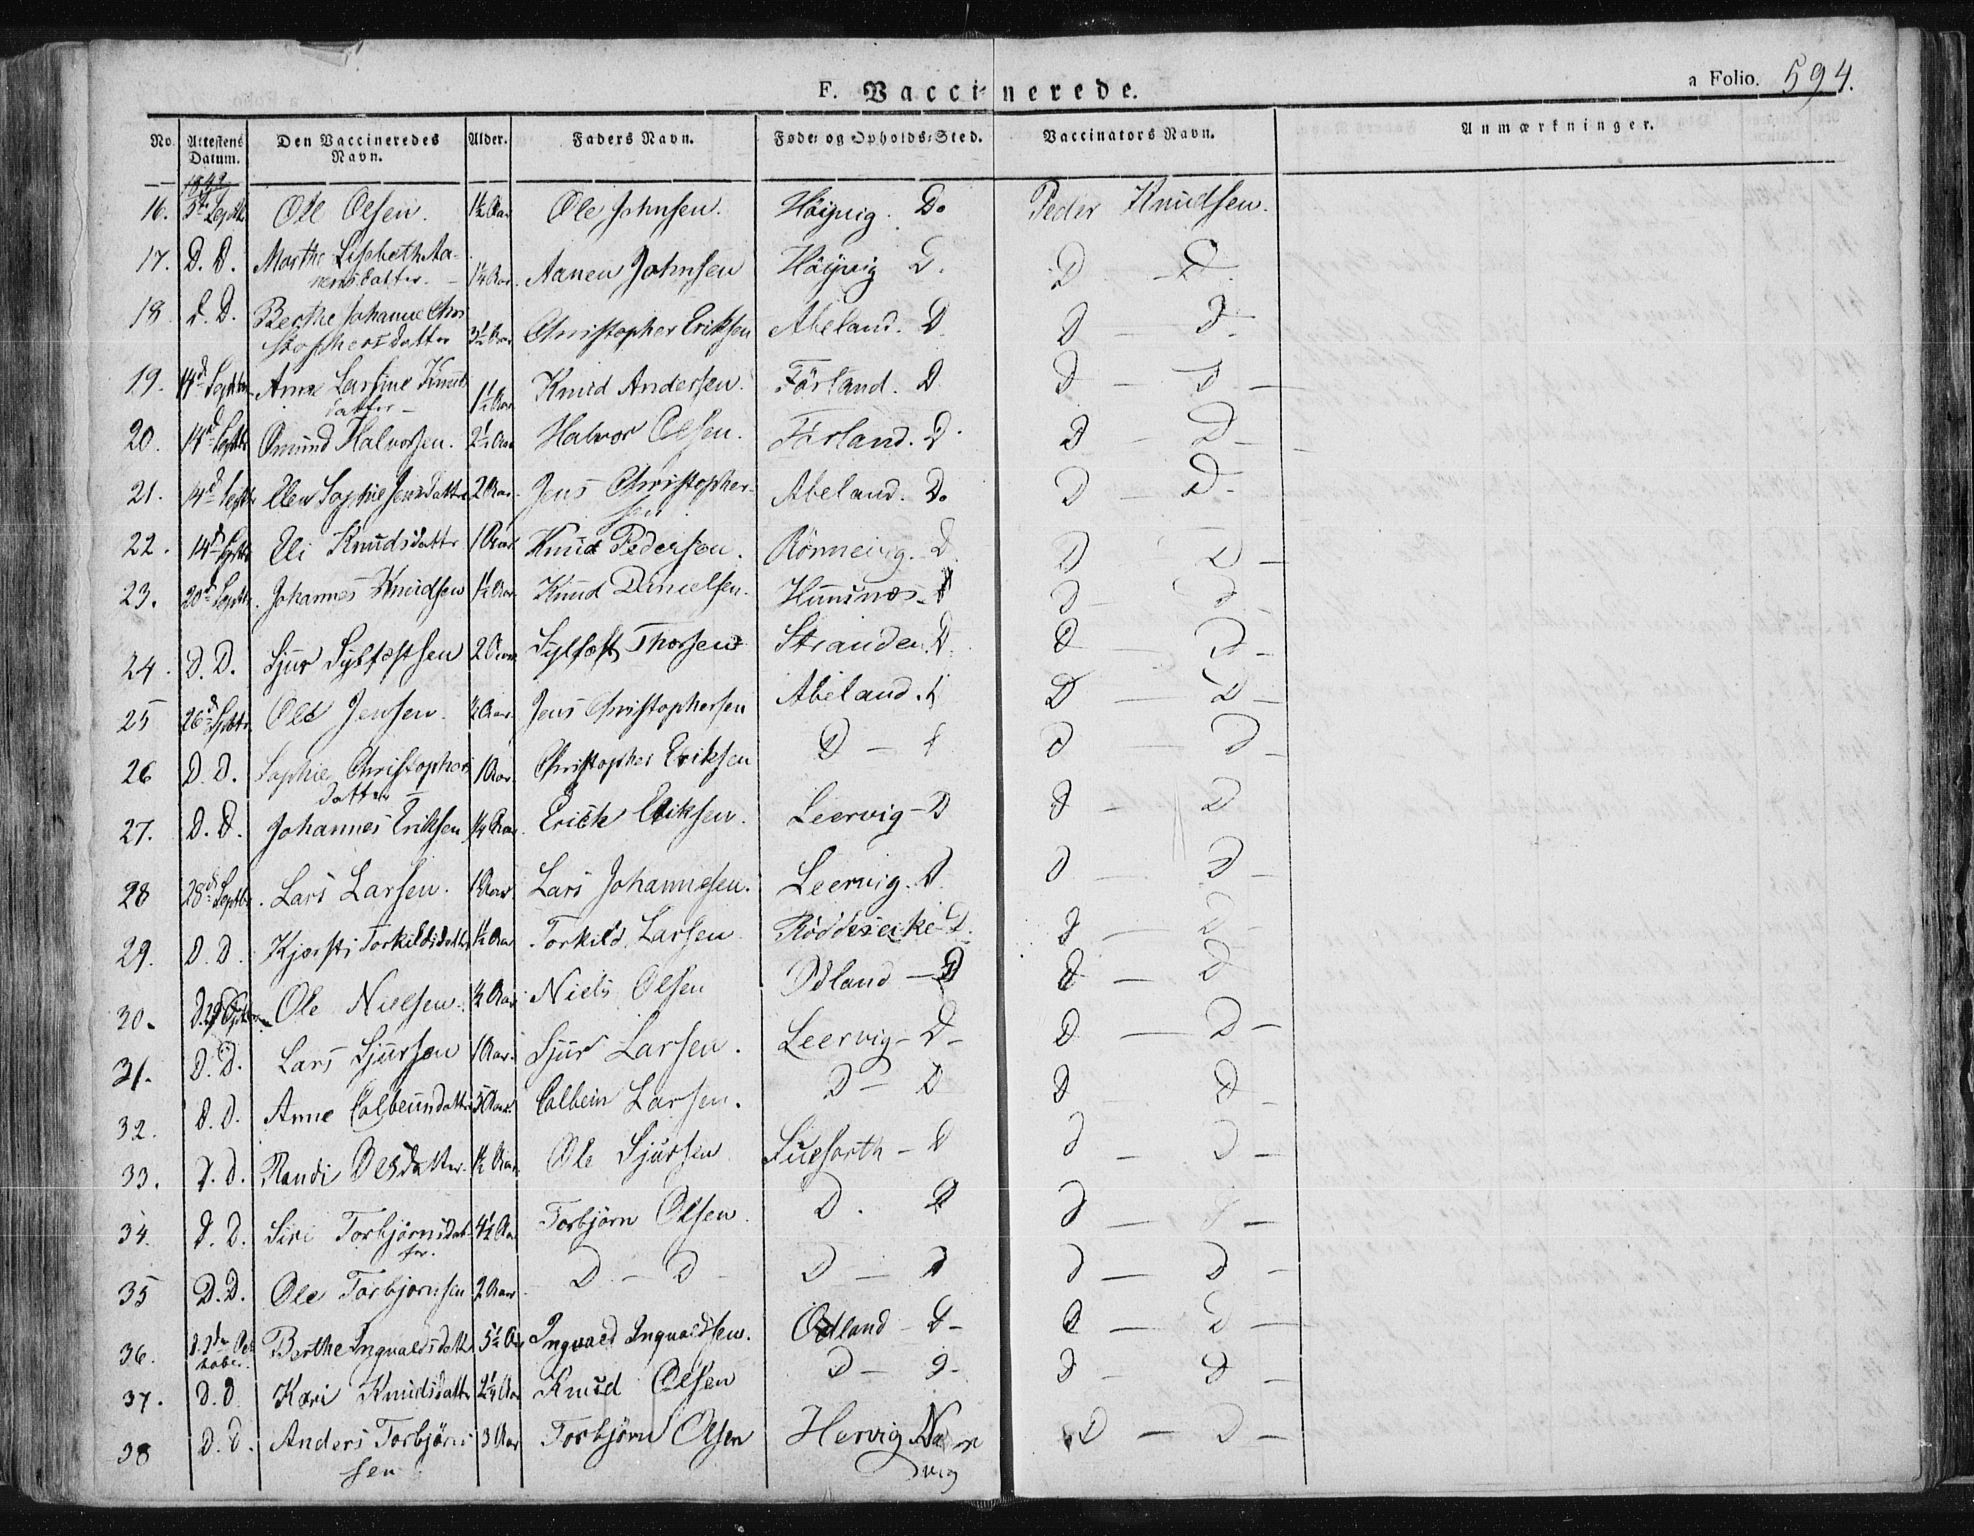 F. Vaccinerede.
a Folio. 594.
No. Attestens Datum. Den Vaccineredes Navn. Alder. Faders Navn. Føde- og Opholds-Sted. Vaccinators Navn. Anmærkninger.
16. 5te Septbr Ole Olsen. 1½ Aar Ole Johnsen. Höijvig. Do Peder Knudsen.
17. D. D. Marthe Lisbeth Aa-
nensdatter. 1¼ Aar. Aanen Johnsen Höijvig D. D — D.
18. D. D. Berthe Johanne Chri
stophersdatter 3½ Aar Christopher Eriksen Abeland. D. D — D.
19. 14d Septbr Anne Lartine Knud
datter — 1½ Aar Knud Andersen. Förland. D D — D —
20. 14d Septbr Omund Halvorsen. 2½ Aar Halvor Olsen. Förland. D. D — D —
21. 14d Septbr Elen Sophie Jensdatter 2 Aar. Jens Christopher-
sen Abeland. Do D — D.
22. 14d Septbr Eli Knudsdatter 1 Aar. Knud Pedersen. Rönnevig. D D — D —
23. 20d Septbr. Johannes Knudsen 1½ Aar. Knud Danielsen. Hunsnæs. D D — D
24. D. D. Sjur Sylfæstsen 2 Aar Sylfæst Thorsen Stranden. D. D — D —
25 26d Septbr. Ole Jensen. ½ Aar. Jens Christophersen Abeland. D D — D —
26 D. D. Sophie Christophers
datter — 1 Aar. Christopher Eriksen D — D D — D —
27. D. D. Johannes Eriksen ¼ Aar. Erich Eriksen. Leervig — D D — D
28 28d Septbr. Lars Larsen. 1 Aar Lars Johannesen. Leervig. D. D — D —
29. D. D. Kjersti Torkildsdatter 1½ Aar Torkild Larsen Röddeseike D. D — D —
30. D. 29 Septbr Ole Nielsen. ½ Aar Niels Olsen Odland — D D — D
31. D. D. Lars Sjursen 1 Aar. Sjur Larsen. Leervig — D — D — D —
32. D. D. Anne Colbeinsdatter 5 Aar. Colbein Larsen. D — D D — D —
33. D. D. Randi Olsdatter. ½ Aar Ole Sjursen — D D — D —
34. D. D. Siri Torbjörnsdat-
ter. 4½ Aar Torbjörn Olsen. D. D D — D —
35 D. D. Ole Torbjörnsen 2 Aar D — D — D — D D — D —
36. D. 3de Oc
tober. Berthe Ingvaldsdatter 5½ Aar Ingvald Ingvaldsen. Odland — D — D — D —
37. D. D Kari Knudsdatter 2¼ Aar Knud Olsen D — D — D — D —
38 D. D. Anders Torbjörn
sen 3 Aar Torbjörn Olsen Hervig
vig D — D —